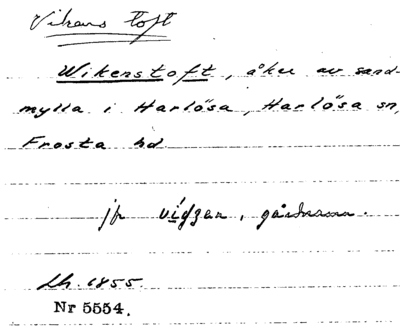 Vikens toft
Wikenstoft, åker av sand-
mylla i Harlösa, Harlösa sn,
Frosta hd
jfr
Lh. 1855.
Nr 5554.